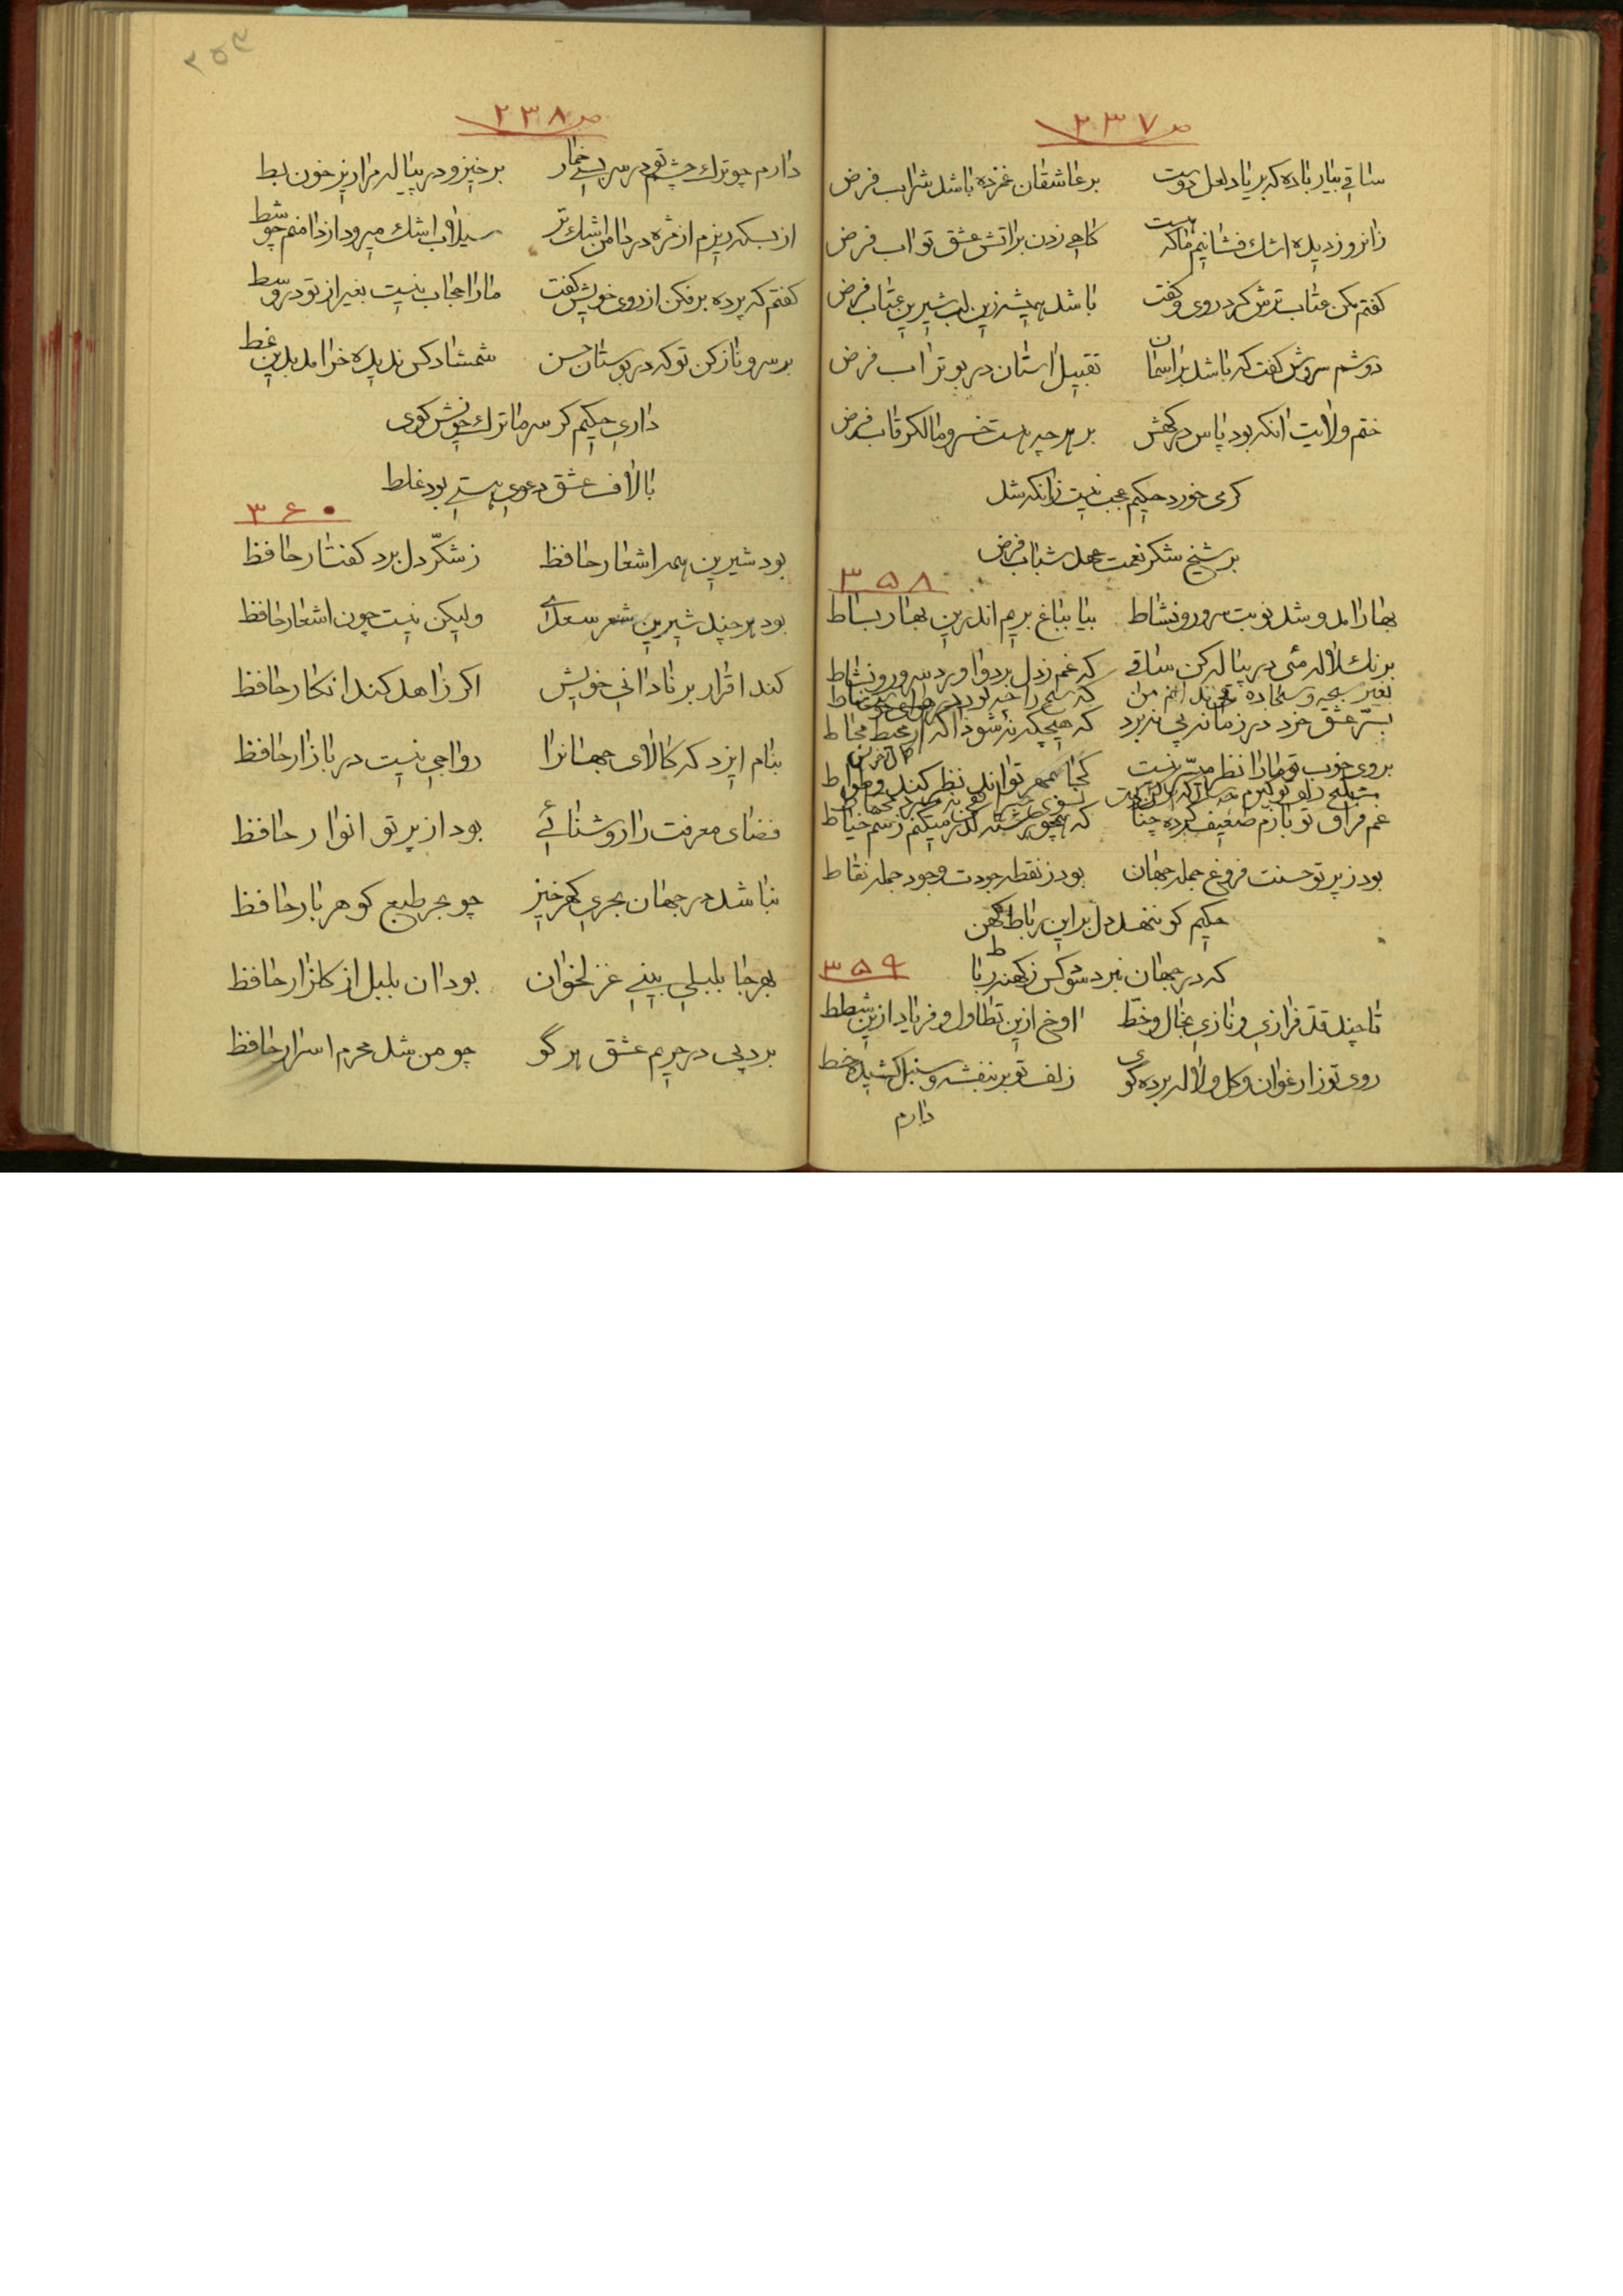 ص ۲۳۷
ساقی بیار باده که بر یاد لعل دوست بر عاشقان غمزده باشد شراب فرض
زانرو ز دیده اشک فشانیم ما که هست کاهی زدن بر اتش عشق تو اب فرض
کفتم مکن عتاب ترش کرد روی و کفت باشد همیشه زین لب شیرین عتاب فرض
دوشم سروش کفت که باشد بر اسمان تقبیل استان در بو تراب فرض
ختم ولایت انکه بود پاس درکهش بر هر چه هست خسرو مالک رقاب فرض
کر می خورد حکیم عجب نیست زانکه شد
بر شیخ شکر نعمت عهد شباب فرض
۳۵۸
بهار امد و شد نوبت سرور و نشاط بیا بباغ بریم اندرین بهار بساط
برنک لاله می در پیاله کن ساقی که غم ز دل برد و اورد سرور و نشاط
بغیر سبحه و سجاده می ندانم من که شیخ را چه بود
بسرّ عشق خرد در زمانه پی نبرد که هیچکه نشود اکه از محیط محاط
بروی خوب تو مارا نظر میسّر نیست کجا بمهر تواند نظر کند وطواط
غم فراق تو بازم ضعیف کرده چنان که همچو رشته کذر میکنم ز سم خیاط
بود ز پرتو حسنت فروغ جمله جهان بود ز نقطه جودت وجود جمله نقاط
حکیم کو ننهد دل بر این رباط کهن
که در جهان نبرد سود کس ز کهنه رباط
۳۵۹
تا چند قد فرازی و نازی بخال و خطّ اوخ ازین تطاول و فریاد ازین شطط
روی تو ز ارغوان و کل و لاله برده کوی زلف تو بر بنفشه و سنبل کشیده خط
دارم
۲۵۴
ص ۲۳۸
دارم چو ترک چشم تو در سر بسی خمار برخیز و در پیاله مرا ریز خون بط
از بسکه ریزم از مژه در دامن اشک تر سیلاب اشک میرود از دامنم چو شط
کفتم که پرده بر فکن از روی خویش کفت مارا حجاب نیست بغیر از تو در وسط
بر سرو ناز کن تو که در بوستان حسن شمشاد کس ندیده خرامد بدین نمط
داری حکیم کر سر ما ترک خویش کوی
با لاف عشق دعوی هستی بود غلط
۳۶۰
بود شیرین همه اشعار حافظ ز شکّر دل برد کفتار حافظ
بود هر چند شیرین شعر سعدی ولیکن نیست چون اشعار حافظ
کند اقرار بر نادانی خویش اکر زاهد کند انکار حافظ
بنام ایزد که کالای جهانرا رواجی نیست در بازار حافظ
فضای معرفت را روشنائی بود از پرتو انوار حافظ
نباشد در جهان بحری کهر خیز چو بحر طبع کوهر بار حافظ
بهر جا بلبلی بینی غزلخوان بود ان بلبل از کلزار حافظ
برد پی در حریم عشق هر گو چو من شد محرم اسرار حافظ